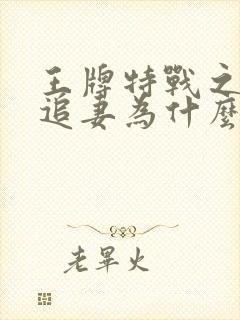 王牌特戰之
追妻為什麼
老畢火